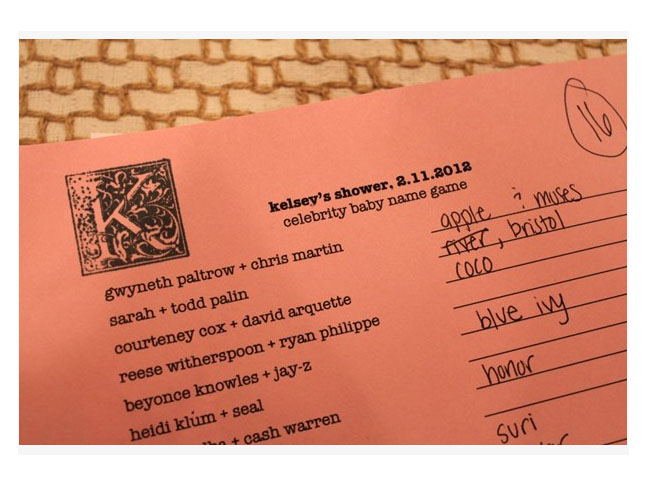 16
K
kelsey's shower, 2.11.2012
celebrity baby name game
gwyneth paltrow + chris martin
apple ? muses
sarah + todd palin
river, bristol
courteney cox + david arquette
coco
reese witherspoon + ryan philippe
beyonce knowles + jay-z
blue ivy
heidi klum + seal
+ cash warren
honor
suri